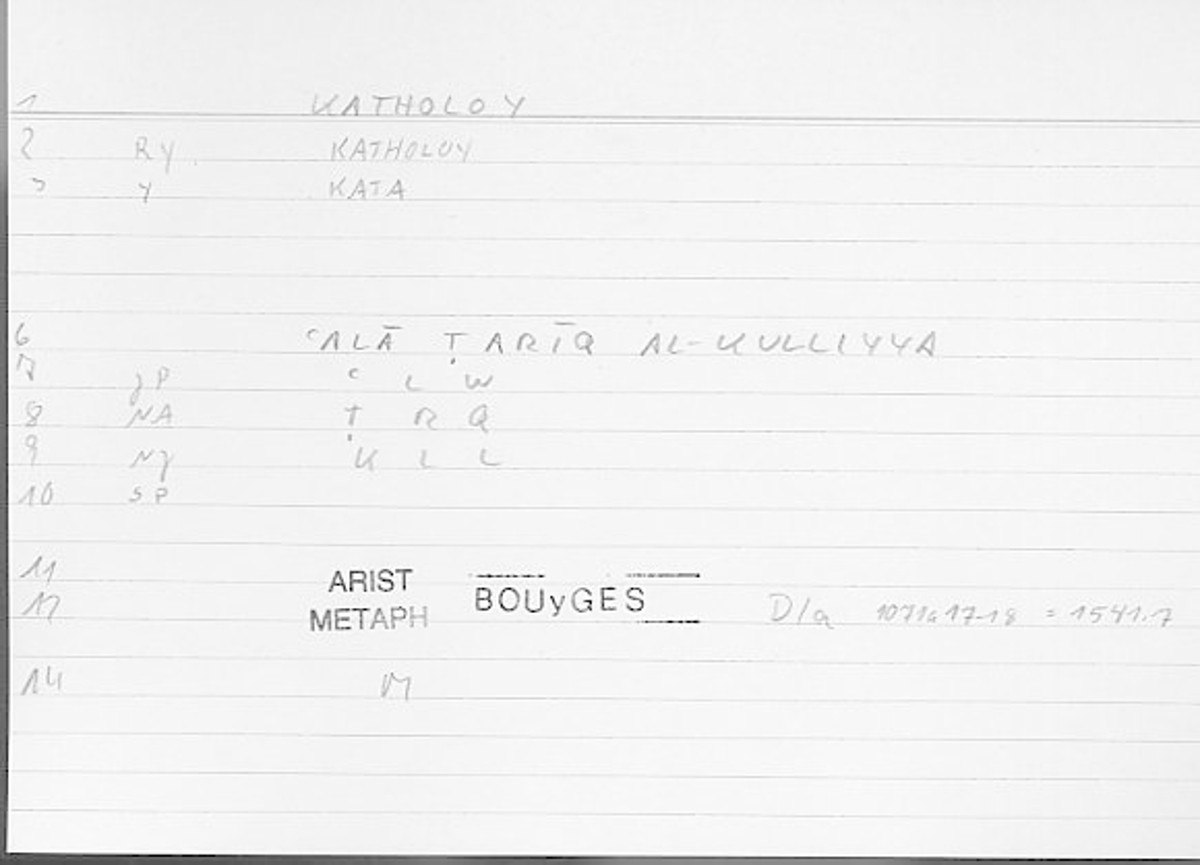 1 KATHOLOY
2 RY KATHOLOY
3 Y KATA
6 ʿALĀ ṬARĪQ AL-KULLIYYA
7 JP ʿ L W
8 NA Ṭ R Q
9 NJ K L L
10 SP
11 ARIST
12 METAPH BOUyGES D/a 1071a17-18 = 1541.7
14 M